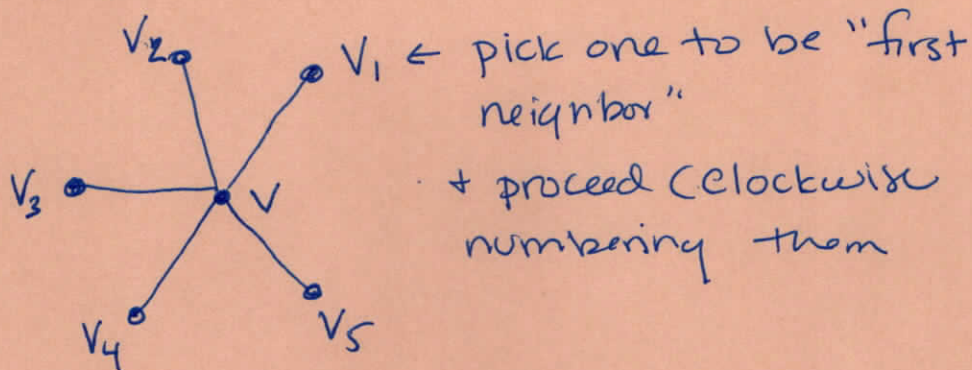 V2
V1 ← pick one to be "first
neighbor"
V3
V
+ proceed CClockwise
numbering them
V4
V5